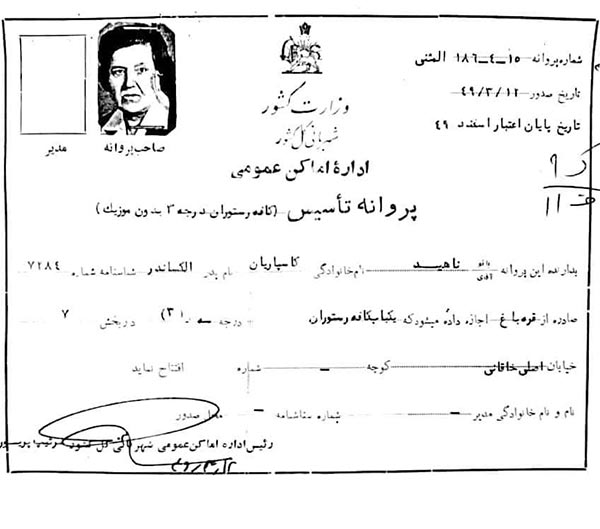 شماره پروانه ۱۵–۴–۱۸۶ المثنی
تاریخ صدور ۴۹/۳/۱۲
تاریخ پایان اعتبار اسفند ۴۹
وزارت کشور
شهربانی کل کشور
اداره اماکن عمومی
صاحب پروانه
مدیر
پروانه تأسیس (کافه رستوران درجه ۳ بدون موزیک)
بدارنده این پروانه بانو آقای ناهید نام خانوادگی کاسپاریان نام پدر الکساندر شناسنامه شماره ۷۲۸۴
صادره از قره باغ اجازه داده میشود که یکباب کافه رستوران درجه سه (۳) در بخش ۷
خیابان اصلی خاقانی کوچه – شماره – افتتاح نماید
نام و نام خانوادگی مدیر – شماره شناسنامه – محل صدور
رئیس اداره اماکن عمومی شهربانی کل کشور